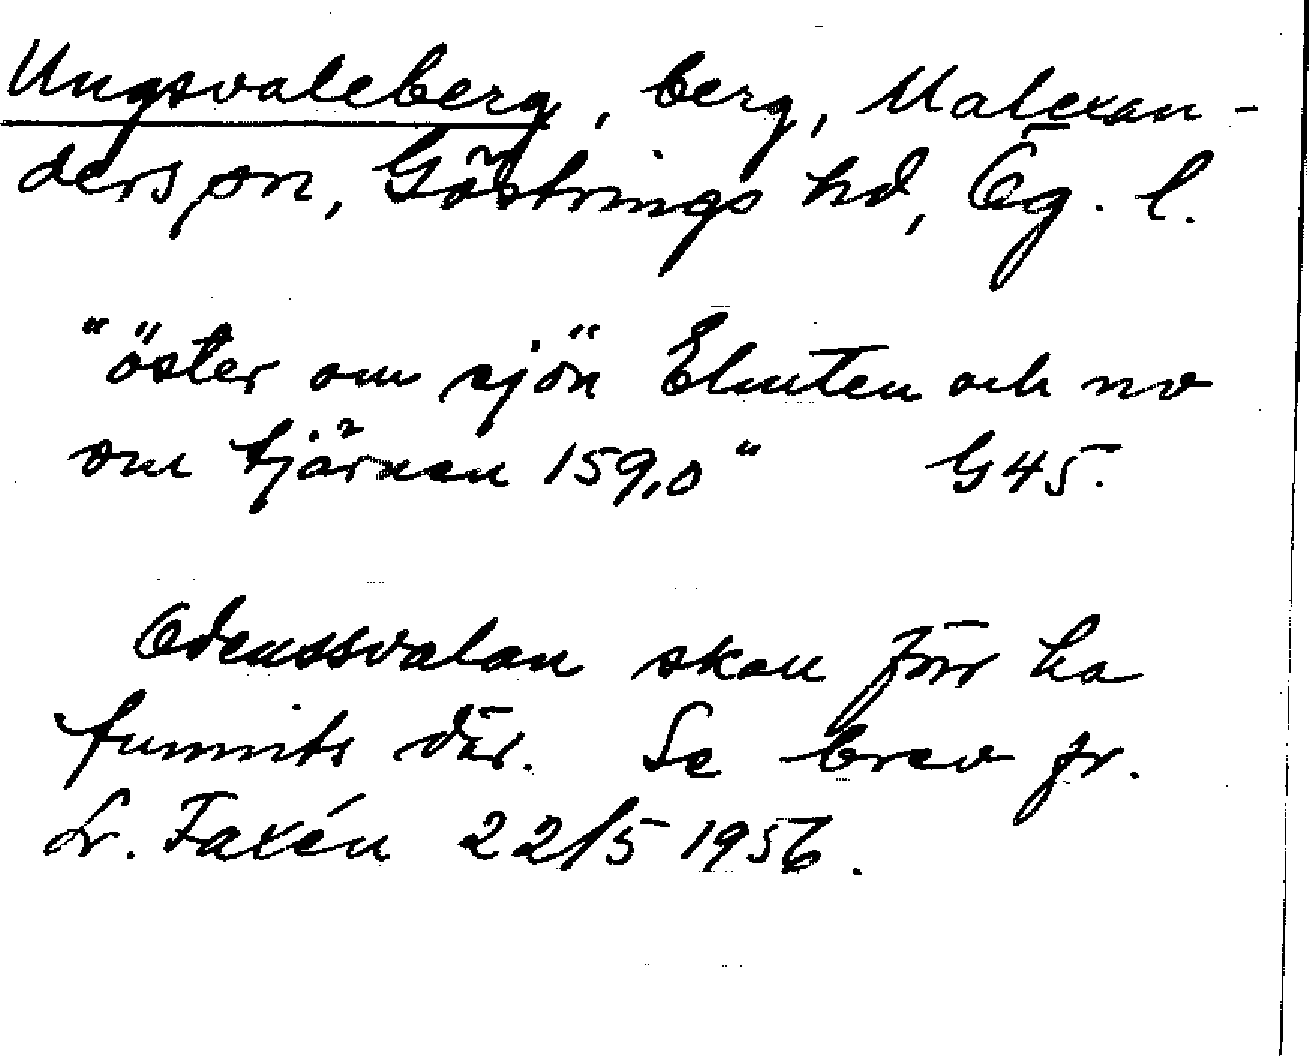 Ungsvaleberg, berg, Malexan-
ders sn, Göstrings hd, Ög. l.
"öster om sjön Elmten och nv
om tjärnen 159,0" G45.
Odenssvalan skall förr ha
funnits där. Se brev fr.
Lr. Faxén 22/5 1956.